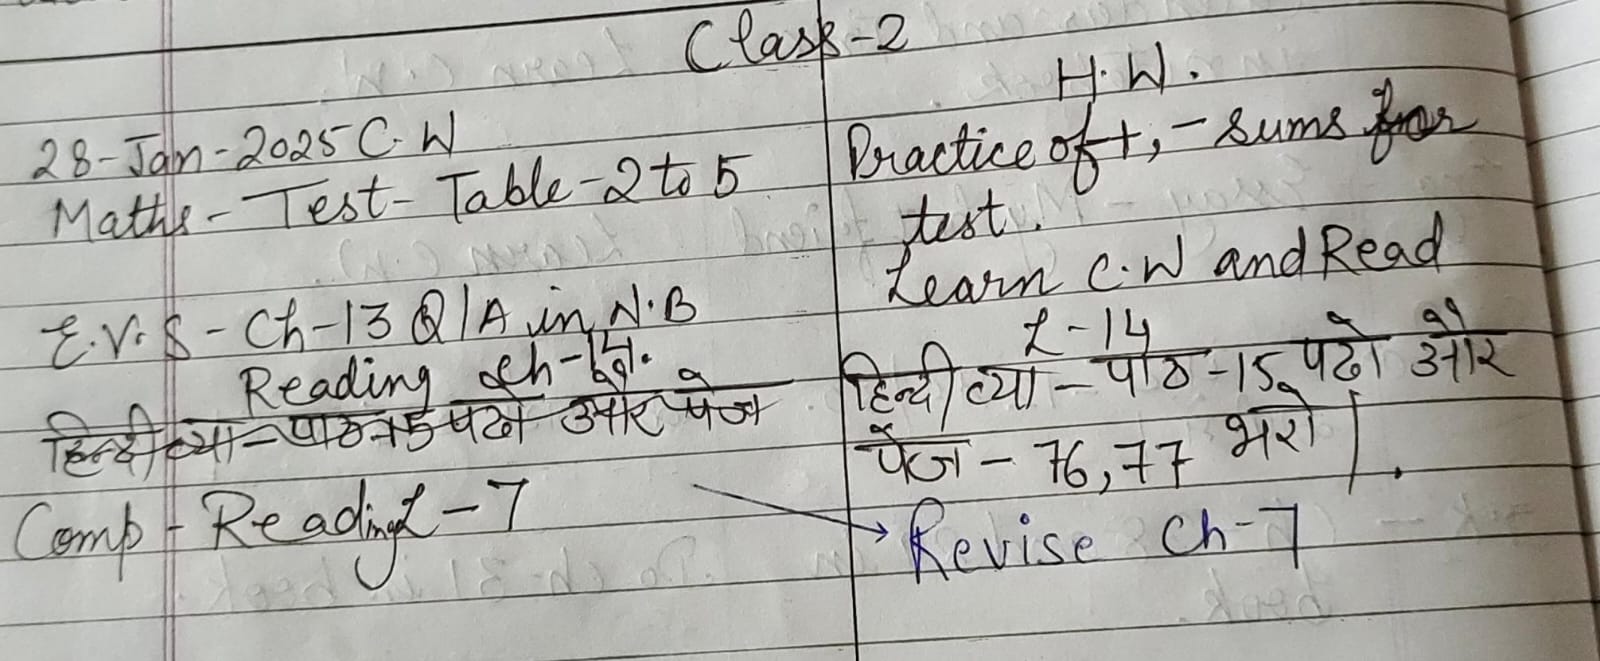 Class-2
H.W.
28-Jan-2025 C.W
Maths - Test - Table-2 to 5
Practice of +, - sums for
test.
E.V.S - Ch-13 Q/A in N.B
Reading Ch-14.
Learn C.W and Read
L-14
हिन्दी व्या - पाठ-15 पढो और पेज
हिन्दी व्या - पाठ-15 पढो और
पेज - 76,77 भरो।
Comp - Reading L-7
Revise Ch-7